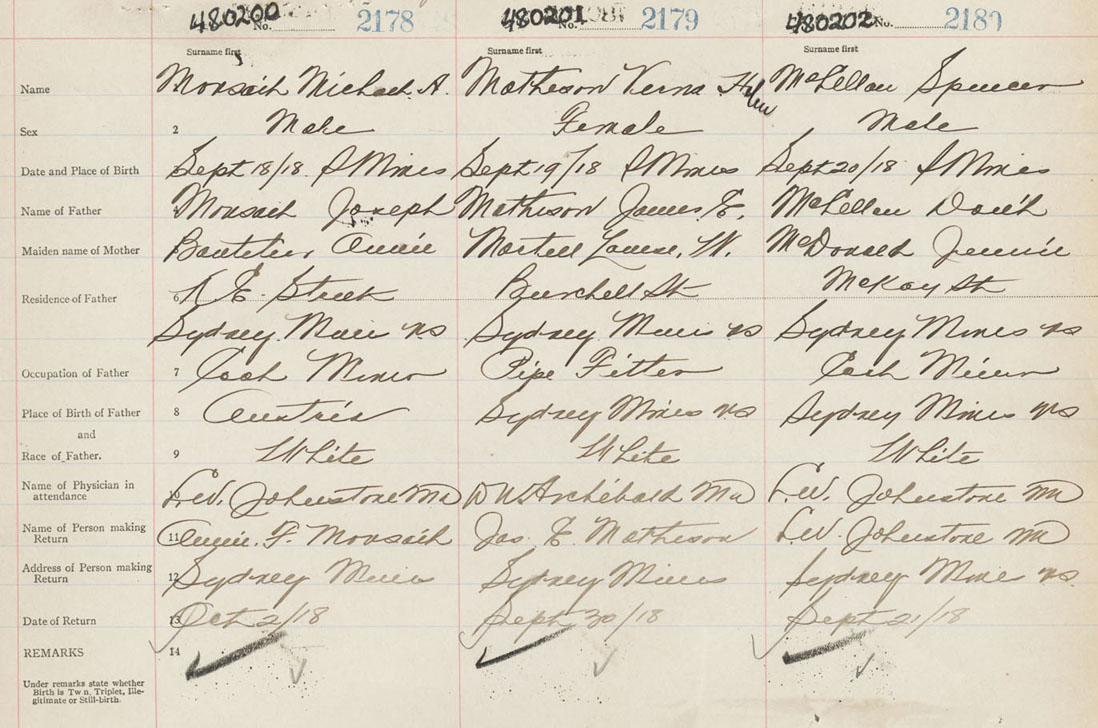 480200 No. 2178 480201 No. 2179 480202 No. 2180
Surname first Surname first Surname first
Name Monsaih Michael A. Matheson Verna Helen McLellan Spencer
Sex 2 Male Female Male
Date and Place of Birth Sept 18/18 S Mines Sept 19/18 S Mines Sept 20/18 S Mines
Name of Father Monsaih Joseph Matheson James E. McLellan Dan'l
Maiden name of Mother Annie Martell Louise, W. McDonald Jennie
Residence of Father 6 Street Burchell St McKay St
Sydney Mines ns Sydney Mines ns Sydney Mines ns
Occupation of Father 7 Coal Miner Pipe Fitter Coal Miner
Place of Birth of Father 8 Austria Sydney Mines ns Sydney Mines ns
and
Race of Father. 9 White White White
Name of Physician in
attendance 10 L.W. Johnstone MD D W Archibald MD L.W. Johnstone MD
Name of Person making
Return 11 Annie. F. Monsaih Jas. E. Matheson L.W. Johnstone MD
Address of Person making
Return 12 Sydney Mines Sydney Mines Sydney Mines ns.
Date of Return 13 Oct 2/18 Sept 30/18 Sept 21/18
REMARKS 14
Under remarks state whether
Birth is Tw n, Triplet, Ille-
gitimate or Still-birth.